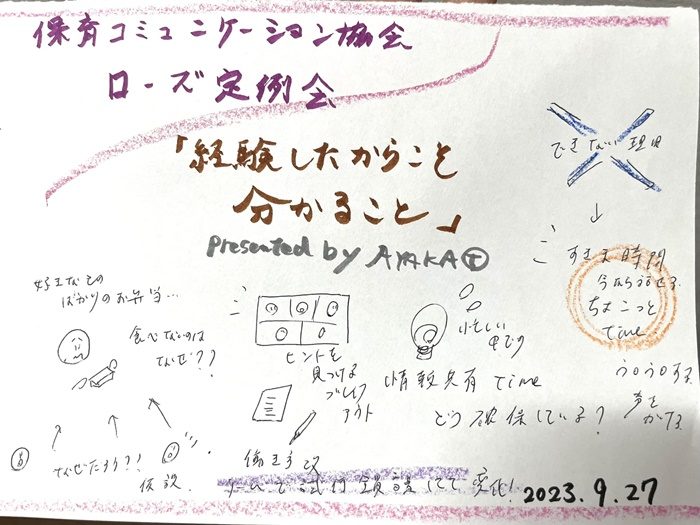 保育コミュニケーション協会
ローズ定例会
「経験したからこと
分かること」
presented by AYAKA T
できない理由
↓
すきま時間
今なら話せる
ちょこっと
time
好きなもの
ばかりのお弁当…
食べないのは
なぜ??
ヒントを
見つける
ブレイク
アウト
忙しい
中で
情報共有 Time
どう確保している?
ウロウロする
声を
かける
なぜだろう?!
仮説
働き方改
変化!
2023.9.27